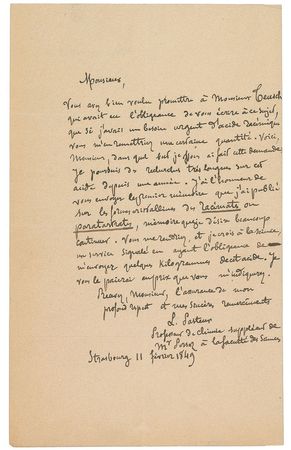 Monsieur,
Vous avez bien voulu promettre à Monsieur Teusch
qui avait eu l'obligeance de vous écrire à ce sujet,
que si j'avais un besoin urgent d'acide racémique
vous m'en remettriez une certaine quantité. Voici,
Monsieur, dans quel but je fais cette demande
Je poursuis des recherches très longues sur cet
acide depuis une année. J'ai l'honneur de
vous envoyer le premier mémoire que j'ai publié
sur les formes cristallines des racémates ou
paratartrates, mémoire que je désire beaucoup
continuer. Vous me rendriez, et je crois à la science,
un service signalé en ayant l'obligeance de
m'envoyer quelques kilogrammes de cet acide. Je
vous le paierai au prix que vous m'indiquerez.
Recevez, Monsieur, l'assurance de mon
profond respect et mes sincères remerciements
L. Pasteur
Professeur de chimie suppléant de
Mr à la faculté des Sciences
Strasbourg 11 février 1849